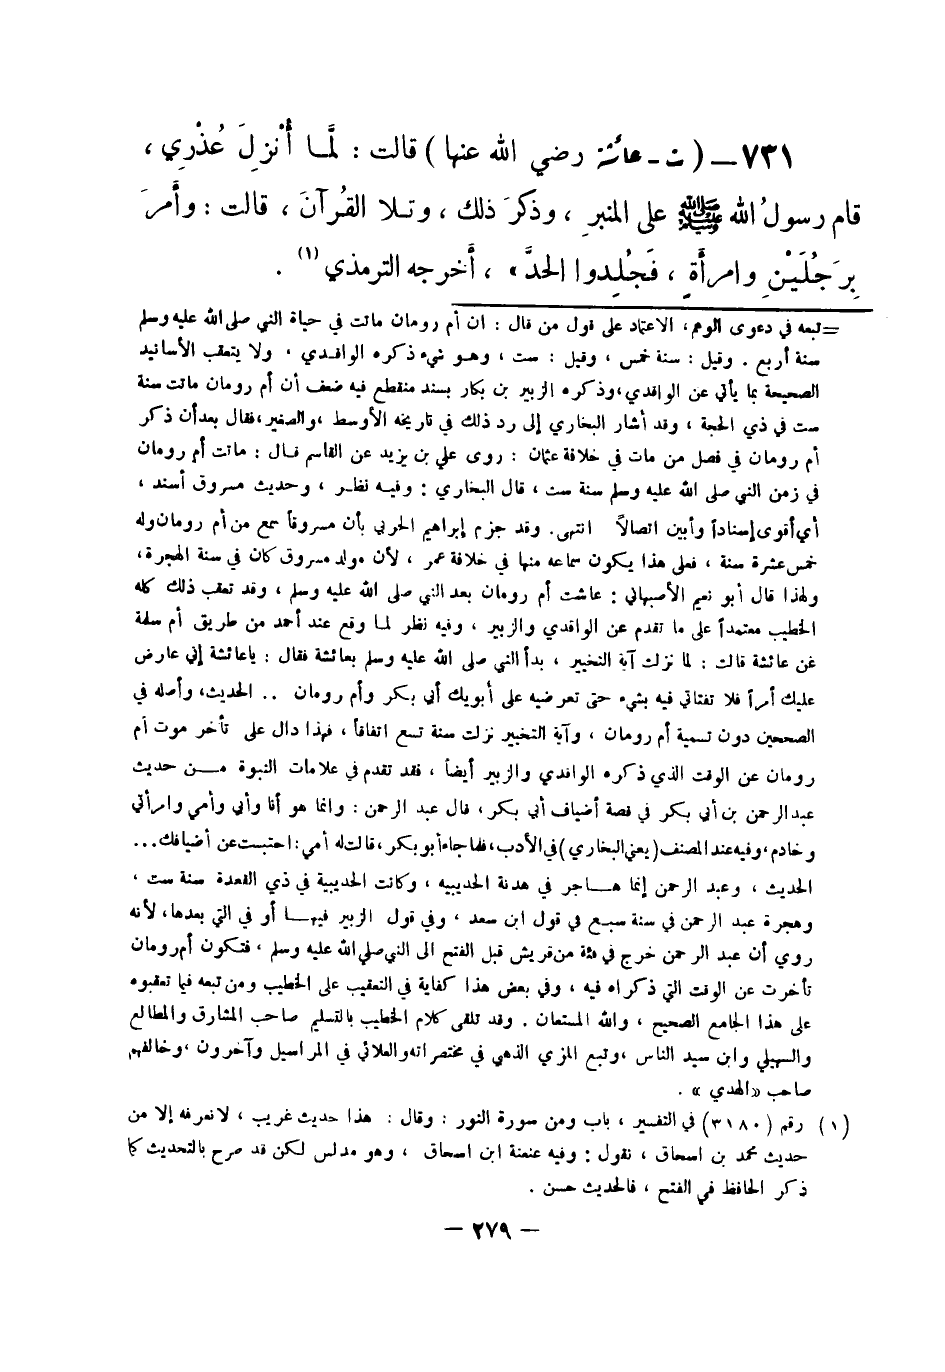 ٧٣١ – ( ت - عائشة رضي الله عنها ) قالت : لمَّا أُنْزِلَ عُذْرِي ،
قام رسولُ الله ﷺ على المنبرِ ، وذكرَ ذلك ، وتلا القُرآنَ ، قالت : وأَمرَ
بِرَجُلَيْنِ وامرأَةٍ ، فَجُلِدوا الحدَّ» ، أَخرجه الترمذي (١) .
= تبعه في دعوى الوهم ، الاعتماد على قول من قال : ان أم رومان ماتت في حياة النبي صلى الله عليه وسلم
سنة أربع . وقيل : سنة خمس ، وقيل : ست ، وهو شيء ذكره الواقدي ، ولا يتعقب الأسانيد
الصحيحة بما يأتي عن الواقدي ، وذكره الزبير بن بكار بسند منقطع فيه ضعف أن أم رومان ماتت سنة
ست في ذي الحجة ، وقد أشار البخاري إلى رد ذلك في تاريخه الأوسط ، والصغير ، فقال بعد أن ذكر
أم رومان في فصل من مات في خلافة عثمان : روى علي بن يزيد عن القاسم قال : ماتت أم رومان
في زمن النبي صلى الله عليه وسلم سنة ست ، قال البخاري : وفيه نظر ، وحديث مسروق أسند ،
أي أقوى إسناداً وأبين اتصالاً انتهى . وقد جزم إبراهيم الحربي بأن مسروقاً سمع من أم رومان وله
خمس عشرة سنة ، فعلى هذا يكون سماعه منها في خلافة عمر ، لأن مولد مسروق كان في سنة الهجرة ،
ولهذا قال أبو نعيم الأصبهاني : عاشت أم رومان بعد النبي صلى الله عليه وسلم ، وقد تعقب ذلك كله
الخطيب معتمداً على ما تقدم عن الواقدي والزبير ، وفيه نظر لما وقع عند أحمد من طريق أم سلمة
عن عائشة قالت : لما نزلت آية التخيير ، بدأ النبي صلى الله عليه وسلم بعائشة فقال : ياعائشة إني عارض
عليك أمراً فلا تفتاتي فيه بشيء حتى تعرضيه على أبويك أبي بكر وأم رومان .. الحديث ، وأصله في
الصحيحين دون تسمية أم رومان ، وآية التخيير نزلت سنة تسع اتفاقاً ، فهذا دال على تأخر موت أم
رومان عن الوقت الذي ذكره الواقدي والزبير أيضاً ، فقد تقدم في علامات النبوة من حديث
عبد الرحمن بن أبي بكر في قصة أضياف أبي بكر ، قال عبد الرحمن : وانما هو أنا وأبي وأمي وامرأتي
وخادم ، وفيه عند المصنف ( يعني البخاري ) في الأدب ، فلما جاء أبو بكر ، قالت له أمي : احتبست عن أضيافك ...
الحديث ، وعبد الرحمن إنما هاجر في هدنة الحديبيه ، وكانت الحديبية في ذي القعدة سنة ست ،
وهجرة عبد الرحمن في سنة سبع في قول ابن سعد ، وفي قول الزبير فيها أو في التي بعدها ، لأنه
روي أن عبد الرحمن خرج في فئة من قريش قبل الفتح الى النبي صلى الله عليه وسلم ، فتكون أم رومان
تأخرت عن الوقت التي ذكراه فيه ، وفي بعض هذا كفاية في التعقيب على الخطيب ومن تبعه فيما تعقبوه
على هذا الجامع الصحيح ، والله المستعان . وقد تلقى كلام الخطيب بالتسليم صاحب المشارق والمطالع
والسهيلي وابن سيد الناس ، وتبع المزي الذهبي في مختصراته والعلائي في المراسيل وآخرون ، وخالفهم
صاحب «الهدي» .
(١) رقم (٣١٨٠) في التفسير ، باب ومن سورة النور : وقال : هذا حديث غريب ، لا نعرفه إلا من
حديث محمد بن اسحاق ، نقول : وفيه عنعنة ابن اسحاق ، وهو مدلس لكن قد صرح بالتحديث كما
ذكر الحافظ في الفتح ، فالحديث حسن .
– ٢٧٩ –